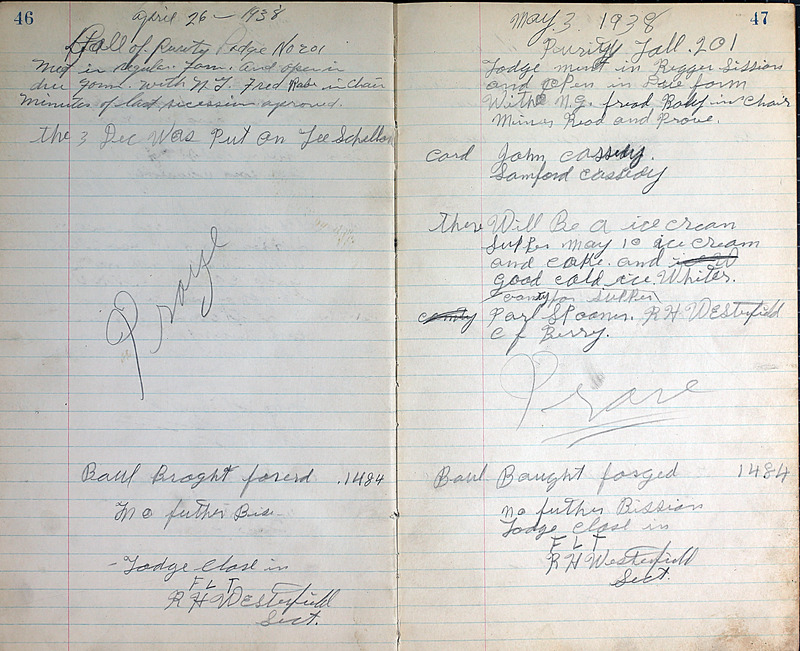 46
April 26 - 1938
Hall of Purity Lodge No 201
Met in regular Form. And open in
due Form. With N. G. Fred Raby in Chair
Minutes of last secession aproved.
the 3 Dec Was Put on Lee Schellon
Praye
Baul Braght forerd .1484
No futher Bus-
- Lodge Close in
F L T
R H Westerfield
Sect.
47
May. 3. 1938
Purity Hall. 201
Lodge meet in Regger Sission
and open in Due form
With N.G. fread Raby in Chair
Minus Read and Prove.
card John Cassidy.
Samford Cassidy
there Will Be a ice cream
Supper may 10 ice cream
and cake. and
good cold ice. Whiter.
comty for Supper
comty Parl Spooner. R H Westerfield
C F Berry.
Prare
Baul Baught forged 1484
no futher Bission
Lodge Close in
F L T
R H Westerfield
Sect.